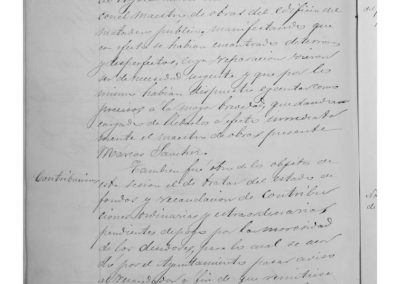 con el Maestro de obras del edificio del
matadero publico, manifestandes que
en efecto se habian encontrado deterioros
y desperfectos, cuya reparacion
de necesidad urgente y que por lo
mismo habian dispuesto ejecutar como
precisos a la mayor brevedad, quedando en-
cargado de llevarlo a efecto inmediata
mente el maestro de obras presente
Marcos Sanchez.
Contribucion
Tambien fué otro de los objetos de
esta sesion el de tratar del estado de
fondos y recaudacion de contribu
ciones ordinarias y estraordinarias
pendientes de pago por la morosidad
de los deudores, para lo cual se acor
dó por el Ayuntamiento pasar aviso
al Recaudador a fin de que remitiese